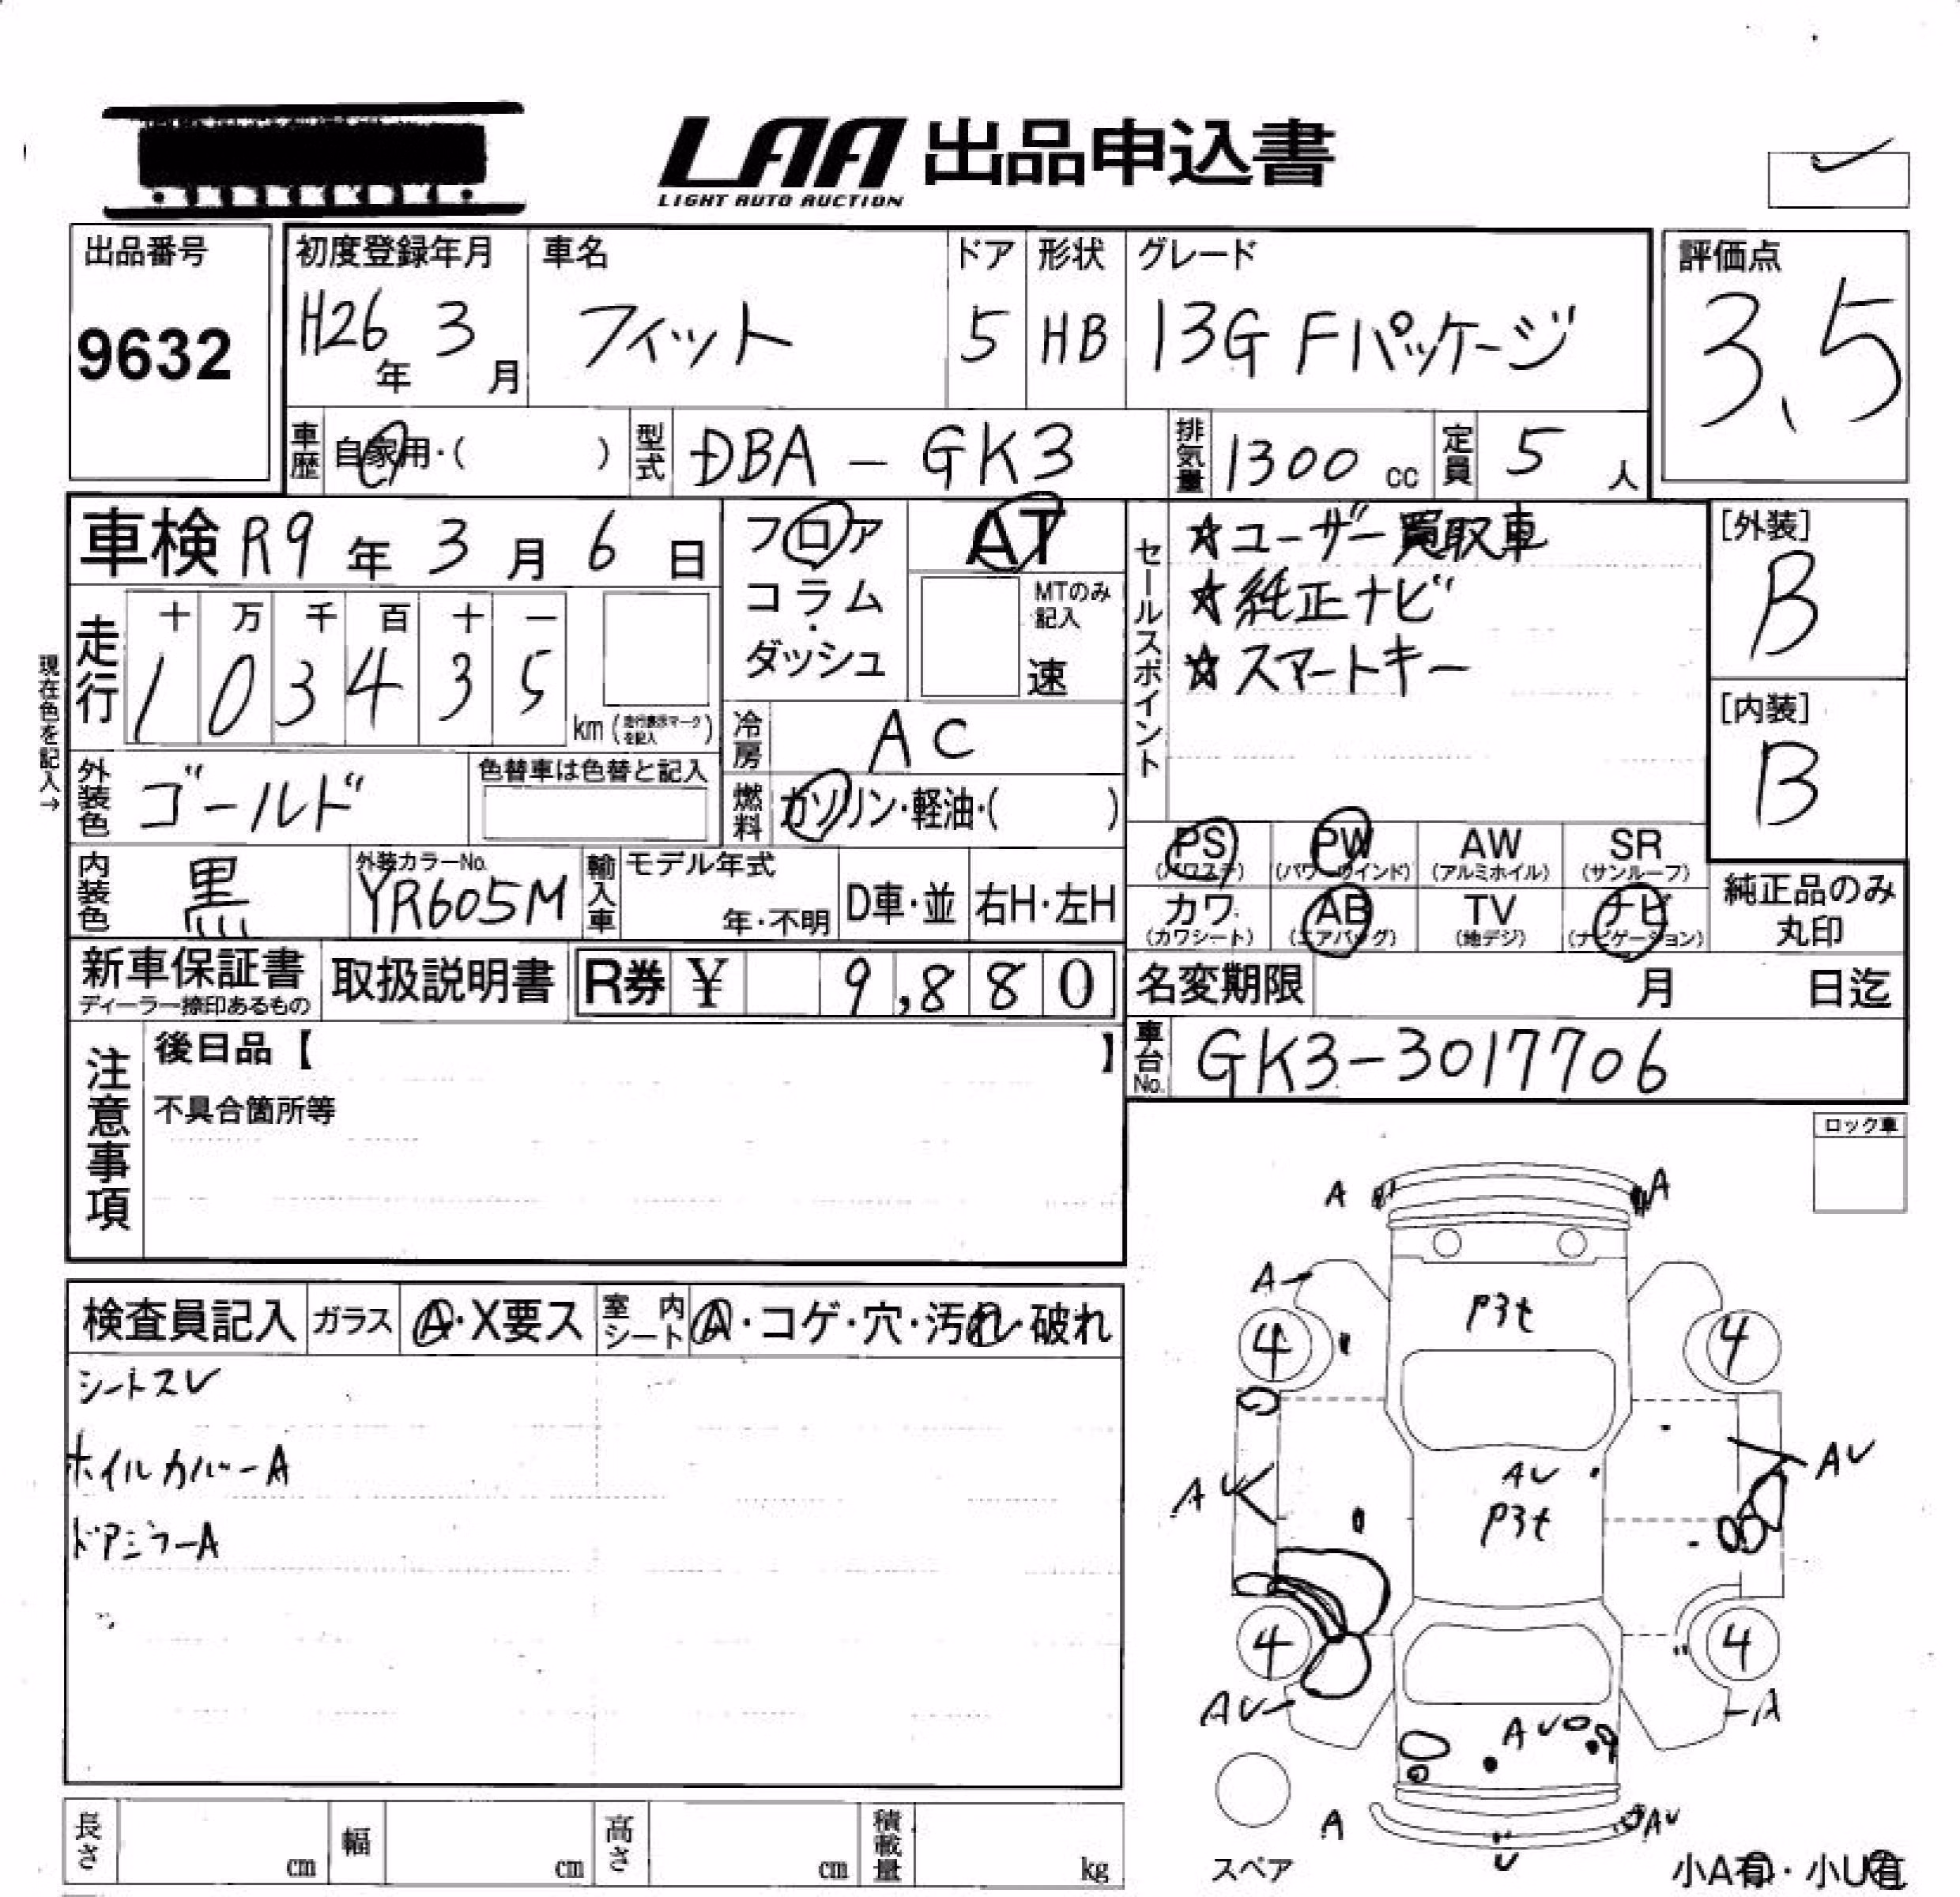 LAA 出品申込書
LIGHT AUTO AUCTION
出品番号
9632
初度登録年月
H26年 3月
車名
フィット
ドア
5
形状
HB
グレード
13G Fパッケージ
評価点
3.5
車歴 自家用・( )
型式 DBA-GK3
排気量 1300 cc
定員 5 人
車検 R9年 3月 6日
走行
十 万 千 百 十 一
1 0 3 4 3 5
km (走行表示マークを記入)
現在色を記入→
外装色 ゴールド
色替車は色替と記入
内装色 黒
外装カラーNo.
YR605M
フロア
コラム
・
ダッシュ
AT
MTのみ記入
速
冷房 AC
燃料 ガソリン・軽油・( )
輸入車
モデル年式
年・不明
D車・並
右H・左H
セールスポイント
☆ユーザー買取車
☆純正ナビ
☆スマートキー
[外装]
B
[内装]
B
PS (パワステ)
PW (パワーウインド)
AW (アルミホイル)
SR (サンルーフ)
カワ (カワシート)
AB (エアバッグ)
TV (地デジ)
ナビ (ナビゲーション)
純正品のみ
丸印
新車保証書
ディーラー捺印あるもの
取扱説明書
R券 ¥ 9,880
名変期限 月 日迄
車台No. GK3-3017706
注意事項
後日品【 】
不具合箇所等
ロック車
検査員記入
ガラス A・X要ス
室内シート A・コゲ・穴・汚れ・破れ
シートスレ
ホイルカバーA
ドアミラーA
A A
A
P3t
4 4
AU AU
AU
P3t
4 4
AU A
AU
A AU
U
スペア
小A有・小U有
長さ cm
幅 cm
高さ cm
積載量 kg